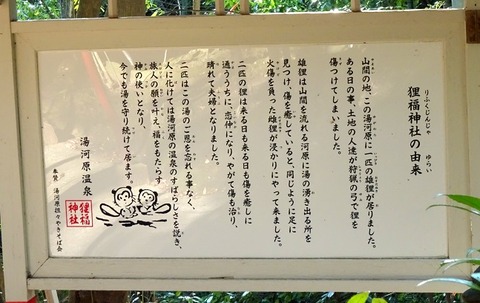 狸福神社の由来
りふくじんじゃ ゆらい
山間の地、この湯河原に一匹の雄狸が居りました。
ある日の事、土地の人達が狩猟の弓で狸を
傷つけてしまいました。
雄狸は山間を流れる河原に湯の湧き出る所を
見つけ、傷を癒していると、同じように足に
火傷を負った雌狸が浸かりにやって来ました。
二匹の狸は来る日も来る日も傷を癒しに
通ううちに、恋仲になり、やがて傷も治り、
晴れて夫婦となりました。
二匹はこの湯のご恩を忘れる事なく、
人に化けては湯河原の温泉のすばらしさを説き、
旅人の願を叶え、福をもたらす
神の使いとなり、
今でも湯を守り続けて居ます。
湯河原温泉
狸福神社
奉賛 湯河原担々やきそば会